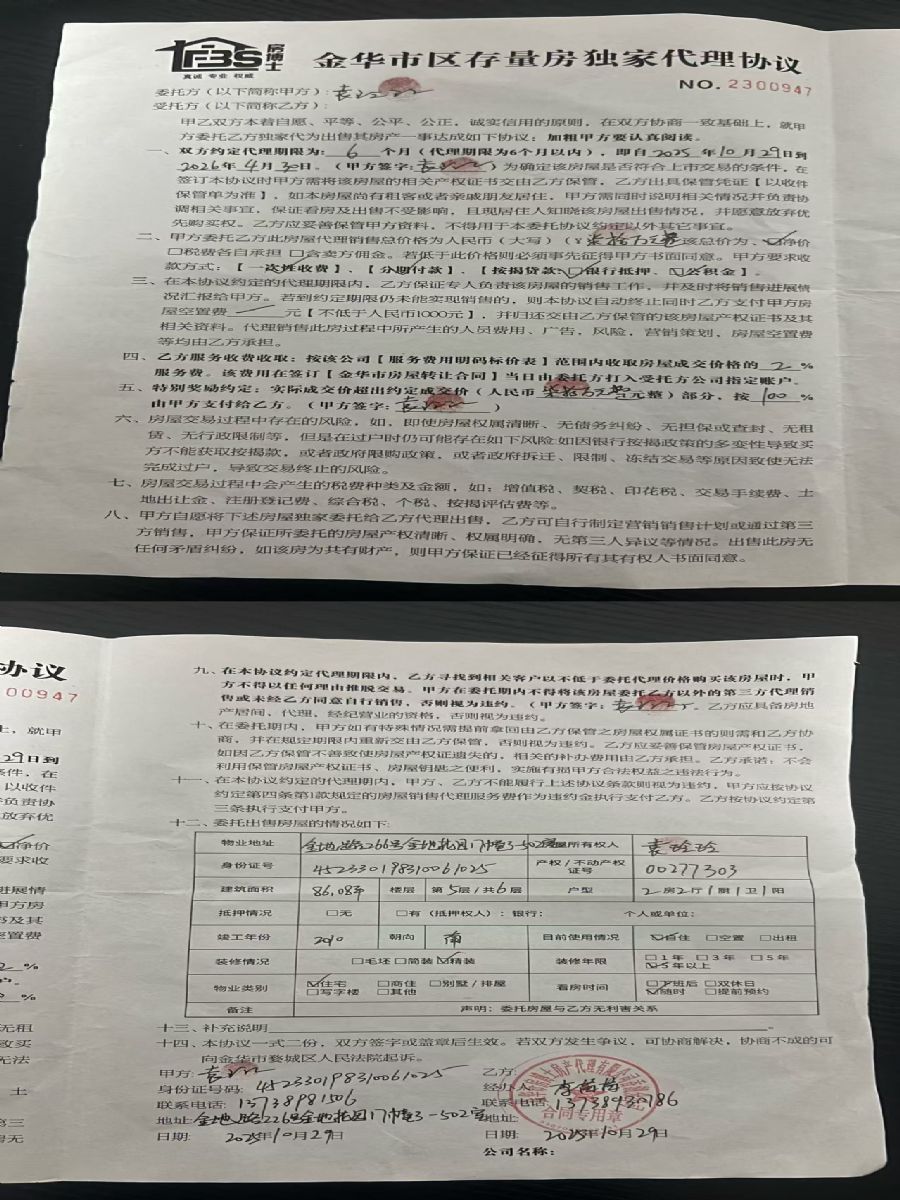 FBS 房博士
真诚 专业 权威
金华市区存量房独家代理协议
NO. 2300947
委托方（以下简称甲方）：袁玲玲
受托方（以下简称乙方）：
甲乙双方本着自愿、平等、公平、公正，诚实信用的原则，在双方协商一致基础上，就甲
方委托乙方独家代为出售其房产一事达成如下协议：加粗甲方要认真阅读。
一、双方约定代理期限为： 6 个月（代理期限为6个月以内），即自2025 年10月29日到
2026年4月30日。（甲方签字：袁玲玲）为确定该房屋是否符合上市交易的条件，在
签订本协议时甲方需将该房屋的相关产权证书交由乙方保管，乙方出具保管凭证【以收件
保管单为准】，如本房屋尚有租客或者亲戚朋友居住，甲方需同时说明相关情况并负责协
调相关事宜，保证看房及出售不受影响，且现居住人知晓该房屋出售情况，并愿意放弃优
先购买权。乙方应妥善保管甲方资料，不得用于本委托协议约定以外其它事宜。
二、甲方委托乙方此房屋代理销售总价格为人民币（大写）（￥柒拾万元整该总价为、☑净价
□税费各自承担 □含卖方佣金。若低于此价格则必须事先征得甲方书面同意。甲方要求收
款方式：【一次性收费】、【分期付款】、【按揭贷款：☑银行抵押、☑公积金】。
三、在本协议约定的代理期限内，乙方保证专人负责该房屋的销售工作，并及时将销售进展情
况汇报给甲方。若到约定期限仍未能实现销售的，则本协议自动终止同时乙方支付甲方房
屋空置费 一 元【不低于人民币1000元】，并归还交由乙方保管的该房屋产权证书及其
相关资料。代理销售此房过程中所产生的人员费用、广告，风险，营销策划，房屋空置费
等均由乙方承担。
四、乙方服务收费收取：按该公司【服务费用明码标价表】范围内收取房屋成交价格的 2 %
服务费。该费用在签订【金华市房屋转让合同】当日由委托方打入受托方公司指定账户。
五、特别奖励约定：实际成交价超出约定成交价（人民币 柒拾万元整元整）部分，按 100 %
由甲方支付给乙方。（甲方签字：袁玲玲）
六、房屋交易过程中存在的风险，如，即使房屋权属清晰、无债务纠纷、无担保或查封、无租
赁、无行政限制等，但是在过户时仍可能存在如下风险:如因银行按揭政策的多变性导致买
方不能获取按揭款，或者政府限购政策，或者政府拆迁、限制、冻结交易等原因致使无法
完成过户，导致交易终止的风险。
七、房屋交易过程中会产生的税费种类及金额，如：增值税、契税、印花税、交易手续费、土
地出让金、注册登记费、综合税、个税、按揭评估费等。
八、甲方自愿将下述房屋独家委托给乙方代理出售，乙方可自行制定营销销售计划或通过第三
方销售，甲方保证所委托的房屋产权清晰、权属明确，无第三人异议等情况。出售此房无
任何矛盾纠纷，如该房为共有财产，则甲方保证已经征得所有其有权人书面同意。
办议
00947
上，就甲
29日到
条件，在
以收件
负责协
放弃优
☑净价
要求收
进展情
甲方房
书及其
空置费
2 %
户。
%
无租
致买
无法
土
第三
房无
九、在本协议约定代理期限内，乙方寻找到相关客户以不低于委托代理价格购买该房屋时，甲
方不得以任何理由推脱交易。甲方在委托期内不得将该房屋委托乙方以外的第三方代理销
售或未经乙方同意自行销售，否则视为违约。（甲方签字：袁玲玲）。乙方应具备房地
产居间、代理、经纪营业的资格，否则视为违约。
十、在委托期内，甲方如有特殊情况需提前拿回由乙方保管之房屋权属证书的则需和乙方协
商，并在规定期限内重新交由乙方保管，否则视为违约。乙方应妥善保管房屋产权证书，
如因乙方保管不善致使房屋产权证遗失的，相关的补办费用由乙方承担。乙方承诺：不会
利用保管房屋产权证书、房屋钥匙之便利，实施有损甲方合法权益之违法行为。
十一、在本协议约定的代理期内，甲方、乙方不能履行上述协议条款则视为违约，甲方应按协议
约定第四条第1款规定的房屋销售代理服务费作为违约金执行支付乙方。乙方按协议约定第
三条执行支付甲方。
十二、委托出售房屋的情况如下：
物业地址 金地路226号金地花园门幢3-502室 屋所有权人 袁玲玲
身份证号 452330198310061025 产权/不动产权证号 00277303
建筑面积 86.08平 楼层 第5层/共6层 户型 2房2厅1厨1卫1阳
抵押情况 □无 □有（抵押权人）：银行： 个人或单位：
竣工年份 2010 朝向 南 目前使用情况 ☑自住 □空置 □出租
装修情况 □毛坯□简装☑精装 装修年限 □1年 □3年 □5年 ☑5年以上
物业类别 ☑住宅 □商住 □别墅/排屋 □写字楼 □其他 看房时间 □下班后 □双休日 ☑随时 □提前预约
备注 声明：委托房屋与乙方无利害关系
十三、补充说明
十四、本协议一式二份，双方签字或盖章后生效。若双方发生争议，可协商解决，协商不成的可
向金华市婺城区人民法院起诉。
甲方：袁玲玲 乙方：
身份证号码：452330198310061025 经办人：
联系电话：13738981506 联系电话：13738930186
地址：金地路226号金地花园门幢3-502室 地址：
日期： 2025年10月29日 日期： 2025年10月29日
公司名称：
合同专用章